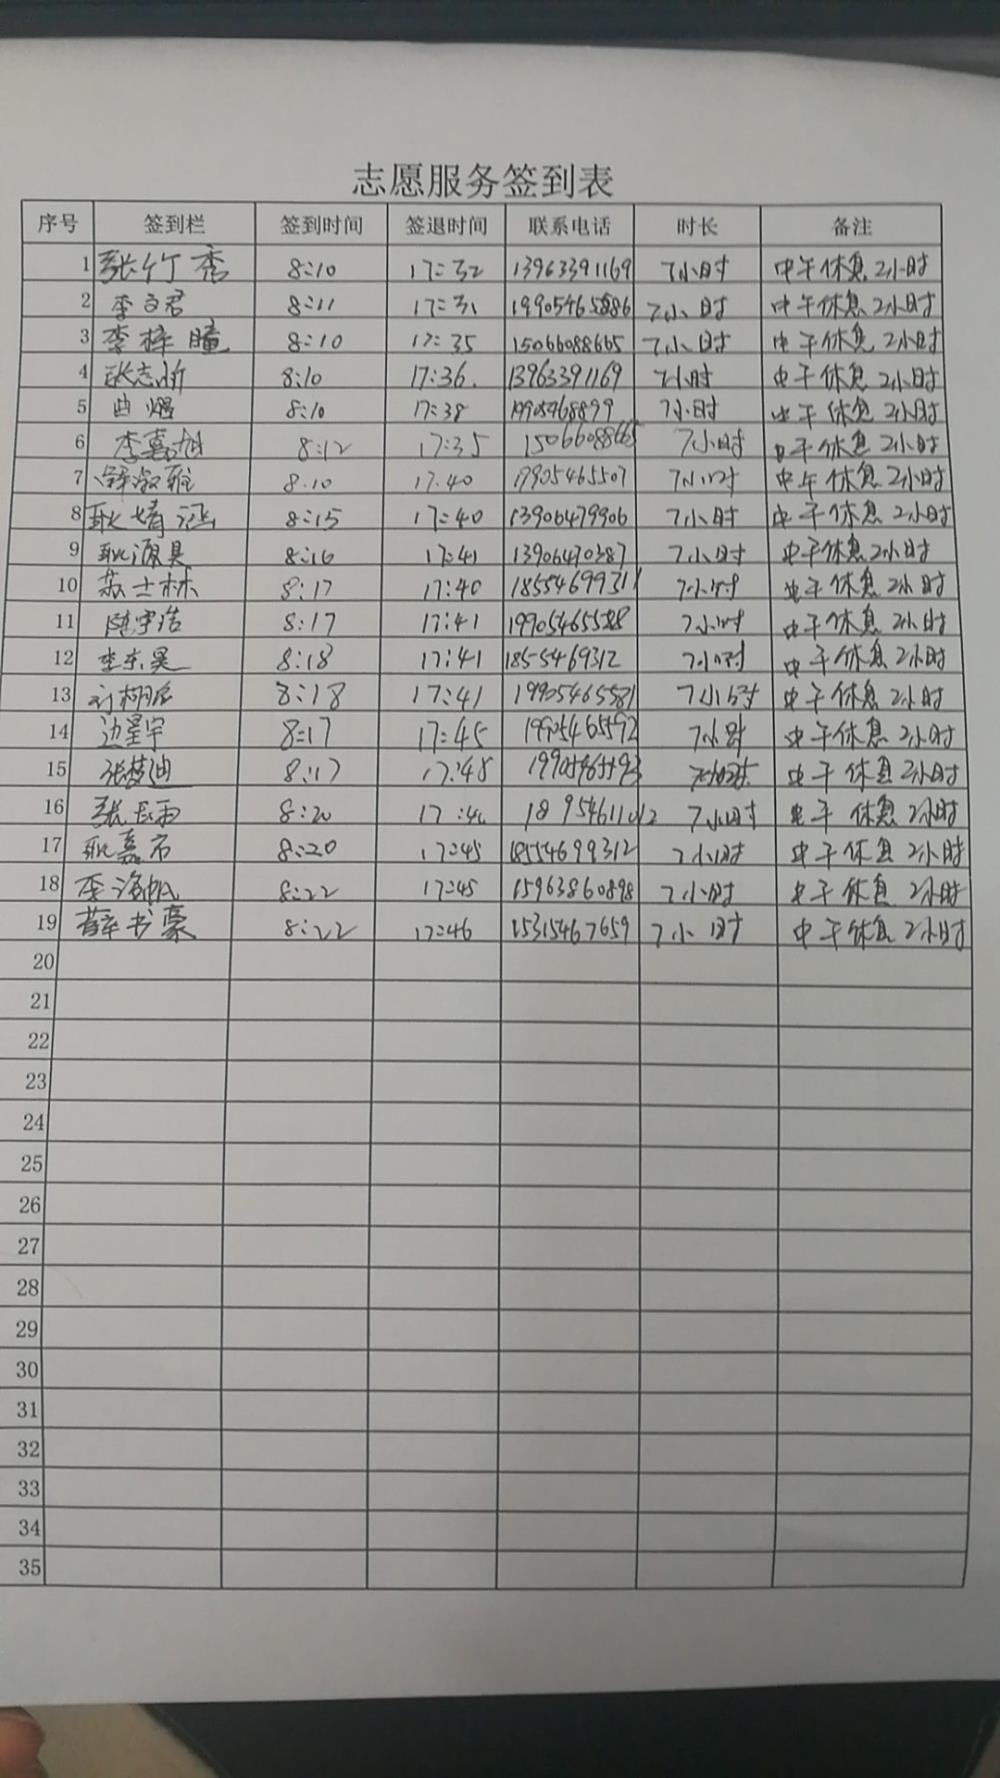 志愿服务签到表
序号 签到栏 签到时间 签退时间 联系电话 时长 备注
1 张竹秀 8:10 17:32 13963391169 7小时 中午休息2小时
2 李文君 8:11 17:31 19905465886 7小时 中午休息2小时
3 李梓瞳 8:10 17:35 15066088665 7小时 中午休息2小时
4 张志昕 8:10 17:36. 13963391169 7小时 中午休息2小时
5 曲煜 8:10 17:38 7小时 中午休息2小时
6 李嘉旭 8:12 17:35 7小时 中午休息2小时
7 8:10 17:40 19905465507 7小时 中午休息2小时
8 耿婧涵 8:15 17:40 13906479906 7小时 中午休息2小时
9 耿源昊 8:16 17:41 13906470387 7小时 中午休息2小时
10 苏士林 8:17 17:40 18554699311 7小时 中午休息2小时
11 陈宇浩 8:17 17:41 7小时 中午休息2小时
12 李东昊 8:18 17:41 1855469312 7小时 中午休息2小时
13 8:18 17:41 19905465581 7小时 中午休息2小时
14 边星宇 8:17 17:45 19905465592 7小时 中午休息2小时
15 张梦迪 8:17 17:45 7小时 中午休息2小时
16 张长雨 8:20 7小时 中午休息2小时
17 8:20 17:45 18554699312 7小时 中午休息2小时
18 李海帆 8:22 17:45 15963860898 7小时 中午休息2小时
19 薛书豪 8:22 17:46 15315467659 7小时 中午休息2小时
20
21
22
23
24
25
26
27
28
29
30
31
32
33
34
35